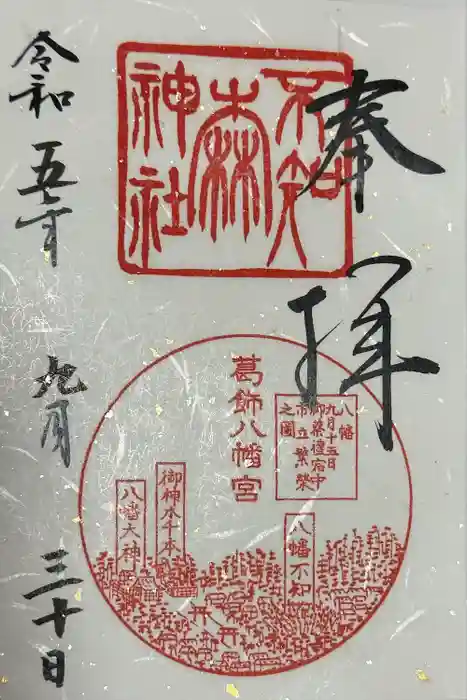 奉拝
不知
森
神社
令和五年
九月
三十日
葛飾八幡宮
八幡
九月十五日
御祭礼宿中
市立繁榮
之圖
御神木千本
八幡大神
八幡不知